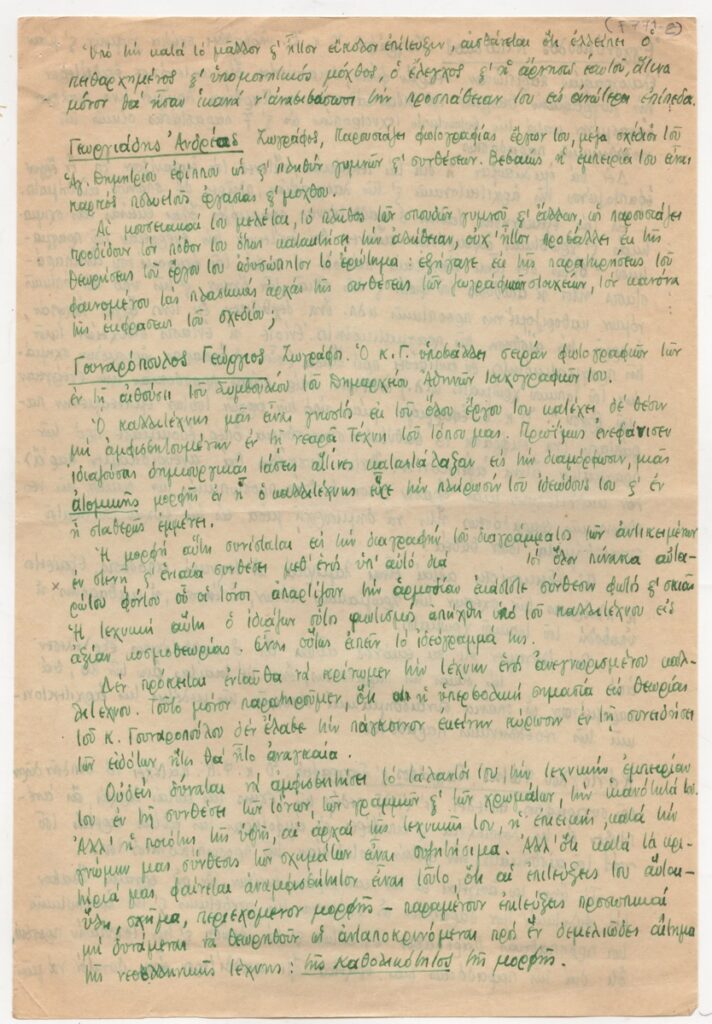 (Γ 771-2)
Ὑπὸ τὴν κατὰ τὸ μᾶλλον ξ' ἧττον εὔκολον ἐπίτευξιν, αἰσθάνεται ὅτι ἐλλείπει ὁ
πειθαρχημένος ξ' ὑπομονητικὸς μόχθος, ὁ ἔλεγχος ξ' ἡ ἄρνησις ἑαυτοῦ, ἅτινα
μόνον θὰ ἦσαν ἱκανὰ ν' ἀναβιβάσωσι τὴν προσπάθειαν του εἰς ἀνώτερα ἐπίπεδα.
Γεωργιάδης Ἀνδρέας Ζωγράφος, Παρουσιάζει φωτογραφίας ἔργων του, μεγα σχέδιον τοῦ
Ἁγ. Δημητρίου ἐφίππου ὡς ξ' πληθὺν γυμνῶν ξ' συνθέσεων. Βεβαίως ἡ ἐμπειρία του εἶναι
καρπὸς πολυετοῦς ἐργασίας ξ' μόχθου.
Αἱ μουσειακαί του μελέται, τὸ πλῆθος τῶν σπουδῶν γυμνοῦ ξ' ἄλλων, ὡς παρουσιάζει
προδίδουν τὸν πόθον του ὅπως κατακτήσει τὴν ἀλήθειαν, οὐχ' ἧττον προβάλλει ἐκ τῆς
θεωρήσεως τοῦ ἔργου του ἀδυσώπητον τὸ ἐρώτημα: ἐξήγαγε ἐκ τῆς παρατηρήσεως τοῦ
φαινομένου τὰς πλαστικὰς ἀρχὰς τῆς συνθέσεως τῶν ζωγραφικῶν στοιχείων, τὸν κανόνα
τῆς ἐκφράσεως τοῦ σχεδίου;
Γουναρόπουλος Γεώργιος Ζωγράφος. Ὁ κ. Γ. ὑποβάλλει σειρὰν φωτογραφιῶν τῶν
ἐν τῇ αἰθούσῃ τοῦ Συμβουλίου τοῦ Δημαρχείου Ἀθηνῶν τοιχογραφιῶν του.
Ὁ καλλιτέχνης μᾶς εἶναι γνωστὸς ἐκ τοῦ ὅλου ἔργου του κατέχει δὲ θέσιν
μὴ ἀμφισβητουμένην ἐν τῇ νεαρᾷ Τέχνῃ τοῦ τόπου μας. Πρωΐμως ἐνεφάνισεν
ἰδιαζούσας δημιουργικὰς τάσεις αἵτινες κατεστάλαξαν εἰς τὴν διαμόρφωσιν, μιᾶς
ἀτομικῆς μορφῆς ἐν ᾗ ὁ καλλιτέχνης εὗρε τὴν πλήρωσιν τοῦ ἰδεώδους του ξ' ἐν
ᾗ σταθερῶς ἐμμένει.
Ἡ μορφὴ αὕτη συνίσταται εἰς τὴν διαγραφὴν τοῦ διαγράμματος τῶν ἀντικειμένων
ἐν στενῇ ξ' ἑνιαίᾳ συνθέσει μεθ' ἑνὸς ὑπ' αὐτὸ δια τὸν ὅλον πίνακα αὐτα-
x ρώτου φόντου οὗ οἱ τόνοι ἀπαρτίζουν τὴν ἁρμοδίαν ἑκάστοτε σύνθεσιν φωτὸς ξ' σκιᾶς
Ἡ τεχνικὴ αὕτη ὁ ἰδιάζων οὗτος φωτισμὸς ἀπήχθη ὑπὸ τοῦ καλλιτέχνου εἰς
ἀξίαν κοσμοθεωρίας. εἶναι οὕτως εἰπεῖν τὸ ἰδεόγραμμά της.
Δὲν πρόκειται ἐνταῦθα νὰ κρίνωμεν τὴν τέχνην ἑνὸς ἀνεγνωρισμένου καλ-
λιτέχνου. Τοῦτο μόνον παρατηροῦμεν, ὅτι ἡ ὑπερβολικὴ σημασία εἰς θεωρίας
τοῦ κ. Γουναροπούλου δὲν ἔλαβε τὴν πάγκοινον ἐκείνην κύρωσιν ἐν τῇ συνειδήσει
τῶν εἰδότων ἥτις θὰ ἦτο ἀναγκαία.
Οὐδεὶς δύναται νὰ ἀμφισβητήσει τὸ τάλαντόν του, τὴν τεχνικὴν ἐμπειρίαν
του ἐν τῇ συνθέσει τῶν τόνων, τῶν γραμμῶν ξ' τῶν χρωμάτων, τὴν ἱκανότητά του.
Ἀλλ' ἡ ποιότης τῆς ὑφῆς, αἱ ἀρχαὶ τῆς τεχνικῆς του, ἡ ἐπιεικὴς κατὰ τὴν
γνώμην μας σύνθεσις τῶν σχημάτων εἶναι συζητήσιμα. Ἀλλ' ὅτι κατὰ τὰ κρι-
τήριά μας, φαίνεται ἀναμφισβήτητον εἶναι τοῦτο ὅτι αἱ ἐπιτεύξεις του αὗται-
ὕλη, σχῆμα, περιεχόμενον μορφῆς - παραμένουν ἐπιτεύξεις προσωπικαὶ
μὴ δυνάμεναι νὰ θεωρηθοῦν ὡς ἀνταποκρινόμεναι πρὸς ἓν θεμελιῶδες αἴτημα
τῆς νεοελληνικῆς τέχνης: τῆς καθολικότητος τῆς μορφῆς.